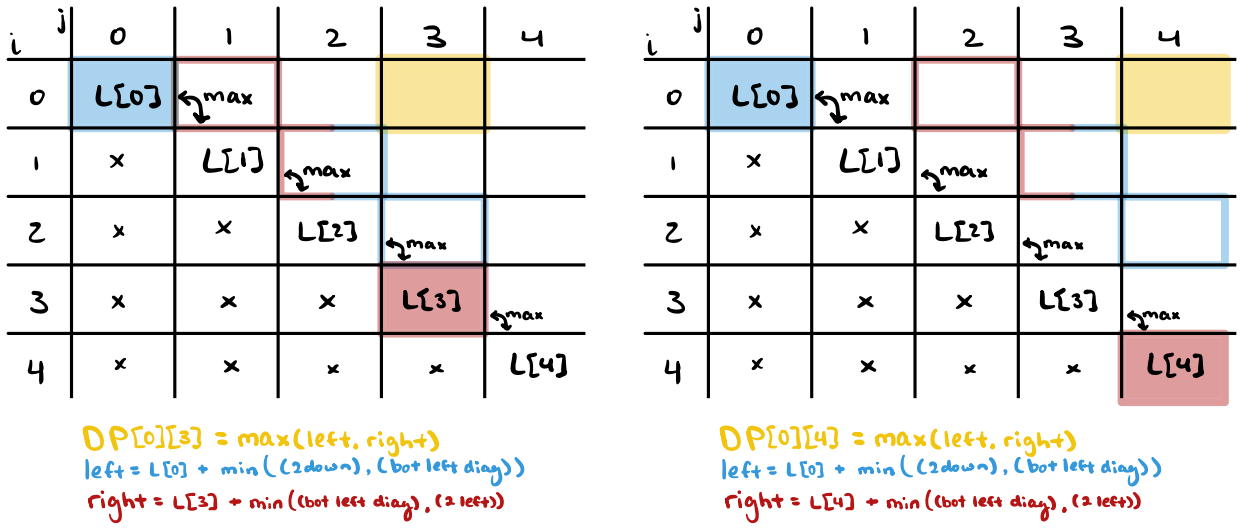 j 0 1 2 3 4
i
0 L[0] max
1 x L[1] max
2 x x L[2] max
3 x x x L[3] max
4 x x x x L[4]
DP[0][3] = max(left, right)
left = L[0] + min((2down), (bot left diag))
right = L[3] + min((bot left diag), (2 left))
j 0 1 2 3 4
i
0 L[0] max
1 x L[1] max
2 x x L[2] max
3 x x x L[3] max
4 x x x x L[4]
DP[0][4] = max(left, right)
left = L[0] + min((2down), (bot left diag))
right = L[4] + min((bot left diag), (2 left))